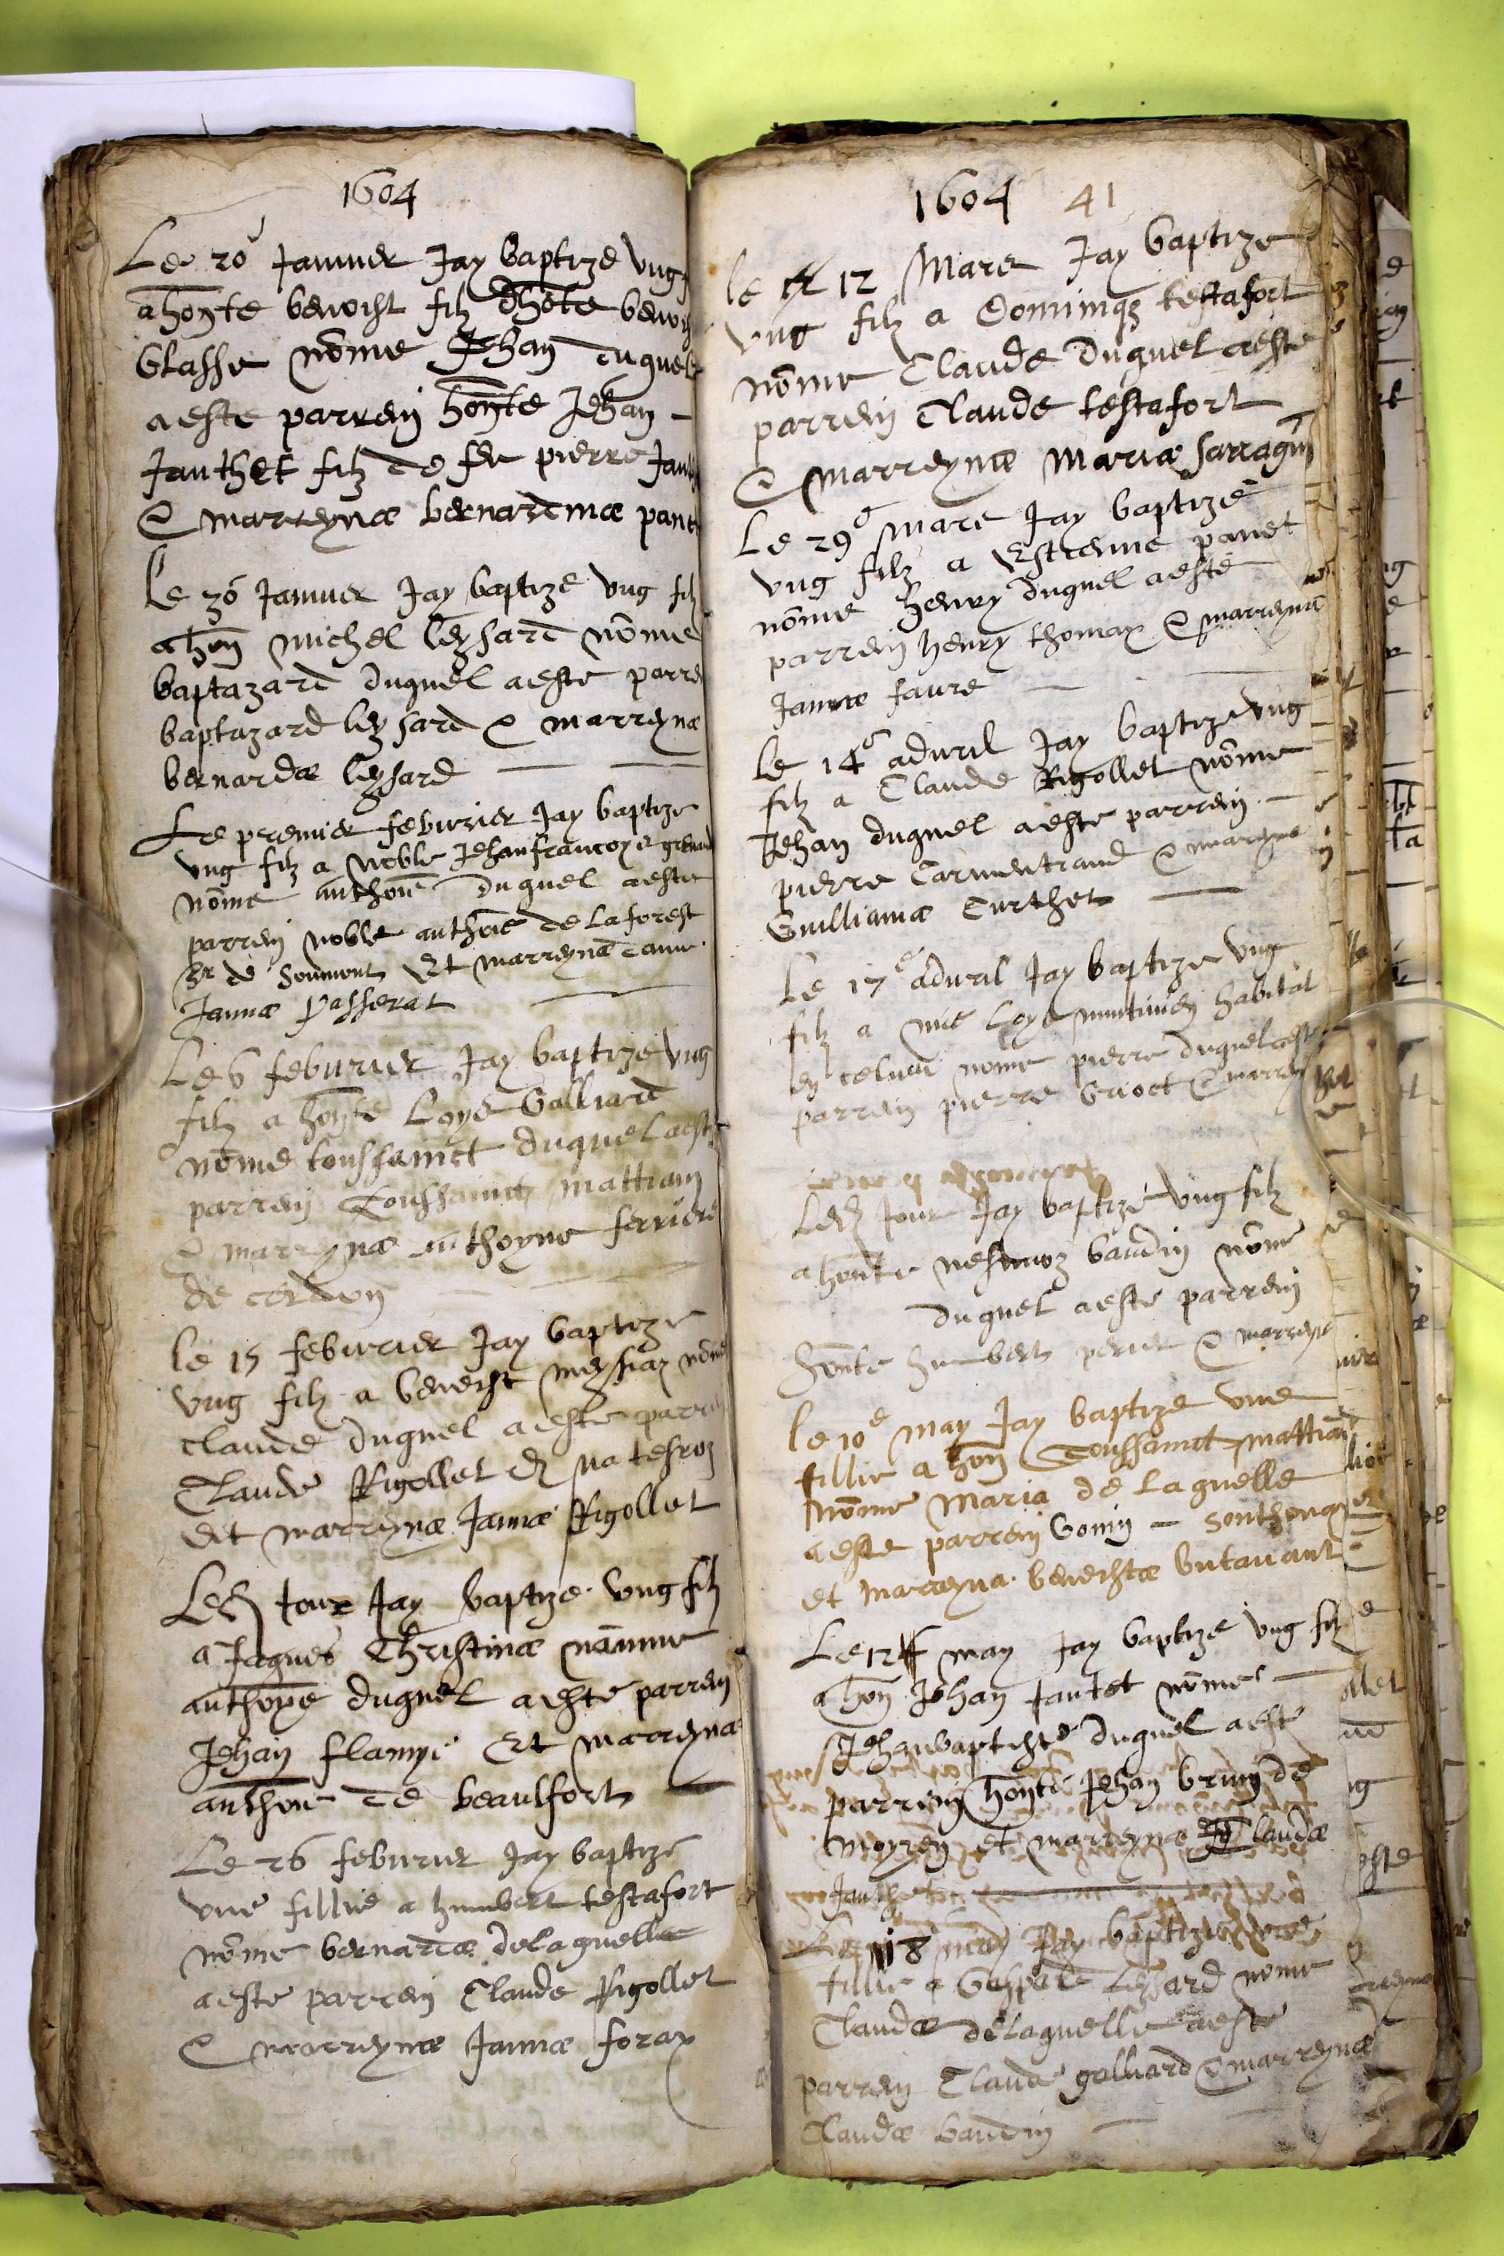 1604
Le 20 Januier Jay baptize vng
a honte benoist filz dhote benoist
Glasse nome Jehan duquel
aeste parrein honte Jehan -
Janthet filz de feu pierre Jant
& marreynæ bernardinæ panet
Le 30 Januier Jay baptize vng filz
a hon michel leysard nome
baptazard duquel aeste parre
baptazard leysard & marreynæ
bernardæ leysard
Le premier feburier Jay baptize
vng filz a noble Jehanfrancoys
nome anthoie duquel aeste
parrein noble anthoie de la forest
sr de Sommont Et marreynæ dame
Jannæ Passerat
Le 6 feburier Jay baptize vng
filz a honte Loys Galliard
nome toussainct duquel aeste
parrein toussainct mattian
& marreynæ anthoyne ferriere
de cordon
le 15 feburier Jay baptize
vng filz a benoist meyssiaz nome
claude duquel aeste parre
Claude Rigollet
et marreynæ Jannæ Rigollet
Led Jour Jay baptize vng filz
a Jaques Christinæ nomme
anthoyne duquel aeste parrein
Jehan flamyi Et marreynæ
anthoie de beaulfort
Le 26 feburier Jay baptize
vne fillie a humbert testafort
nome bernardæ delaquelle
aeste parrein Claude Rigollet
& marreynæ Jannæ forax
1604 41
le 12 Mare Jay baptize
vng filz a Dominiqz testafort
nome Claude duquel aeste
parrein Claude testafort
& marreynæ Mariæ Sarragin
Le 29e mare Jay baptize
vng filz a Estienne panet
nome henry duquel aeste
parrein henry thomax & marreynæ
Jannæ faure
le 14e aduril Jay baptize vng
filz a Claude Rigollet nome
Jehan duquel aeste parrein
pierre Carmentrand & marreyne
Guilliamæ Curthet
Le 17e aduril Jay baptize vng
filz a mre Loys habitat
en nome pierre duquel aeste
parrein pierre Griot & marreyn
Led Jour Jay baptize vng filz
a honte nesmoz baudin nome
duquel aeste parrein
honte humbert & marreyne
le 10e may Jay baptize vne
fillie a hon Toussainct mattian
nome Maria de laquelle
aeste parrein Gonin - southonax
et marreyna benoistæ butauant
Le 12 may Jay baptize vng filz
a hon Jehan Jantet nome
Jehanbaptiste duquel aeste
parrein honte Jehan brun de
moyren et marreynæ Claudæ
Janthet
Le 18 may Jay baptize vne
fillie a Gaspard Leysard nome
Claudæ delaquelle aeste
parrein Claude galliard & marreynæ
Claudæ baudin